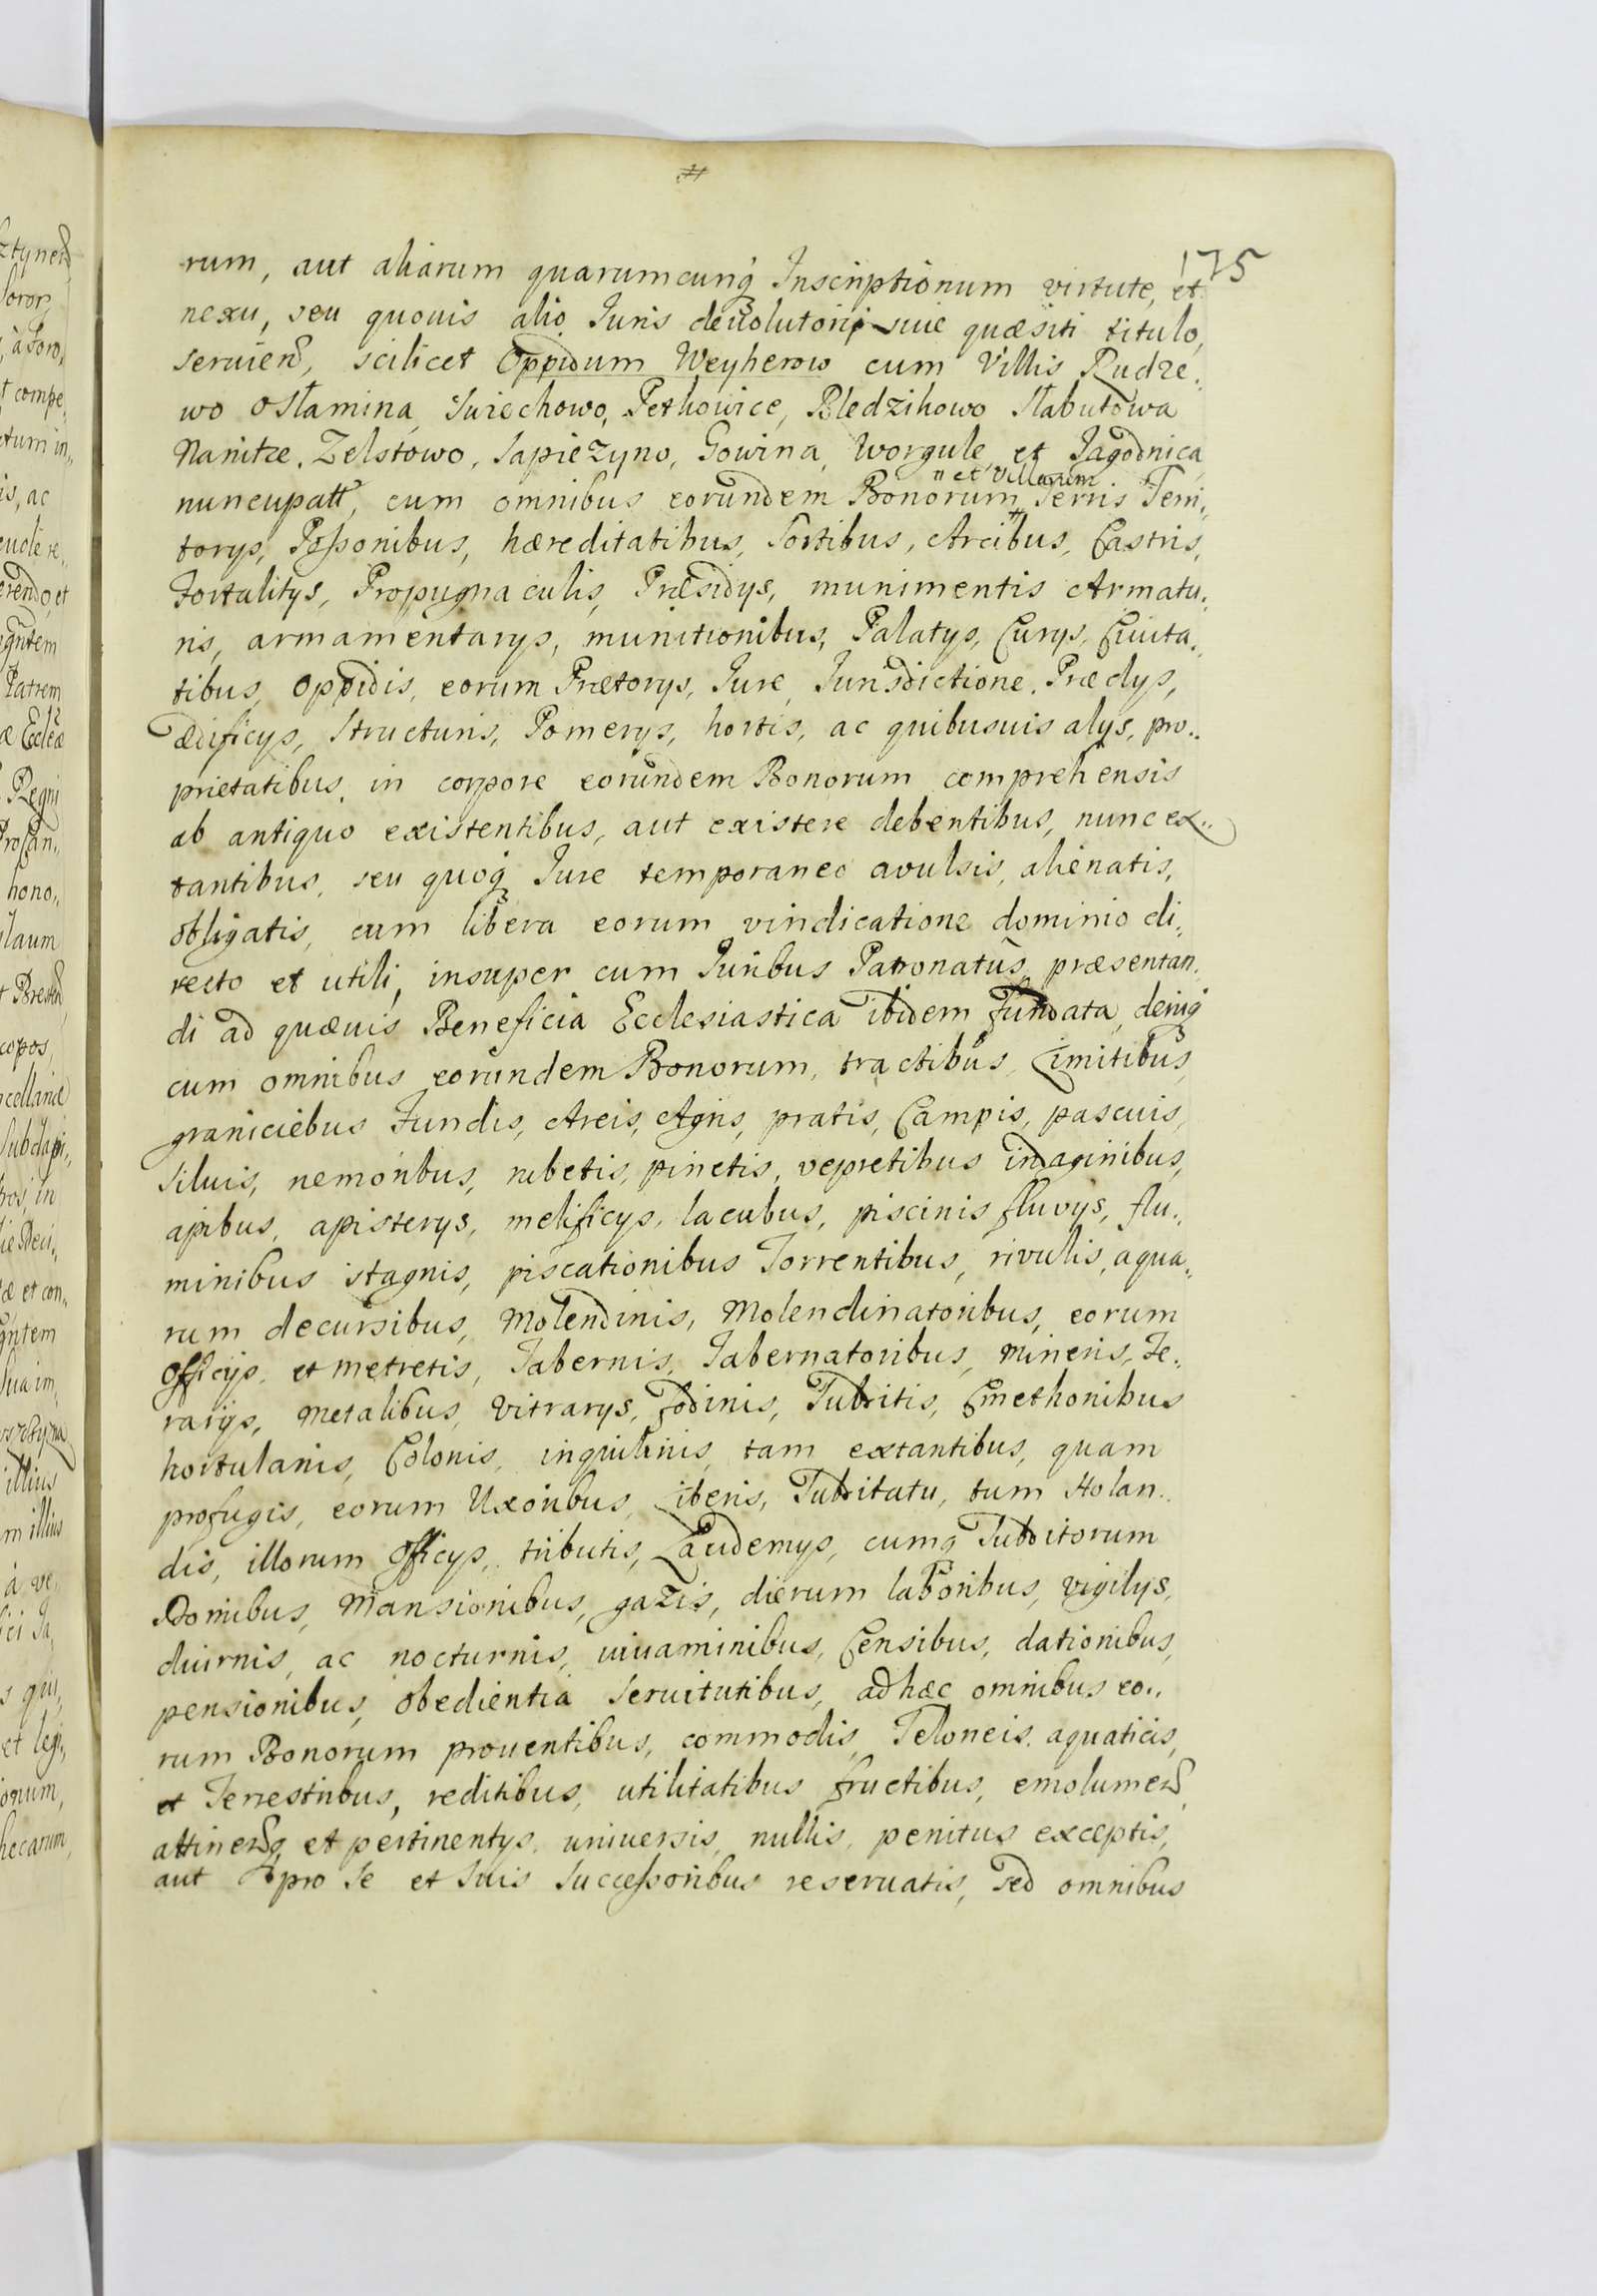 175
rum, aut aliarum quarumcunq Inscriptionum virtute, et
nexu, seu quouis alio Juris deuolutorij siue quæsiti titulo,
seruien, scilicet Oppidum Weyherow cum Villis Rudze
wo Ostamina, Swiechowo, Petkowice, Bledzikowo Stabutowa
Nanitze, Zelstowo, Sapiezyno, Gowina, Worgule, et Jagodnica
" et Villarum
nuncupatt, cum omnibus eorundem Bonorum, Terris Terri,,
torys, Possonibus, hæreditatibus, Sortibus, Arcibus, Castris,
Fortalitys, Propugnaculis, Præsidys, munimentis Armatu,,
ris, armamentarys, munitionibus, Palatys, Curys, Ciuita,,
tibus, Oppidis, eorum Prætorys, Jure, Jurisdictione, Prædys,
ædificys, Structuris, Pomerys, hortis, ac quibusuis alys, pro,,
prietatibus, in corpore eorundem Bonorum comprehensis
ab antiquo existentibus, aut existere debentibus, nunc ex,,
tantibus, seu quoq Jure temporaneo avulsis, alienatis,
obligatis, cum libera eorum vindicatione dominio di,,
recto et utili, insuper cum Juribus Patronatus, præsentan,
di ad quæuis Beneficia Ecclesiastica ibidem fundata, deniq
cum omnibus eorundem Bonorum, tractibus, Limitibus,
graniciebus Fundis, Areis, Agris, pratis, Campis, pascuis,
Siluis, nemoribus, rubetis, pinetis, vepretibus indaginibus,
apibus, apisterys, melificys, lacubus, piscinis fluvys, flu,,
minibus stagnis, piscationibus Torrentibus, rivulis, aqua,,
rum decursibus, Molendinis, Molendinatoribus, eorum
Officys, et metretis, Tabernis, Tabernatoribus, mineris, Fe,,
rarys, metalibus, Vitrarys, fodinis, Subditis, Cmethonibus
hortulanis, Colonis, inquilinis, tam extantibus, quam
profugis, eorum Uxoribus, Liberis, Subditatu, tum Holan,,
dis, illorum Officys, tributis, Laudemys, cumq Subditorum
Domibus, Mansionibus, gazis, dierum laboribus, vigilys,
diurnis, ac nocturnis, iuuaminibus, Censibus, dationibus,
pensionibus, obedientia Seruitutibus, ad hæc omnibus eo,,
rum Bonorum prouentibus, commodis, Teloneis, aquaticis,
et Terrestribus, reditibus, utilitatibus fructibus, emolumen,
attinen, et pertinentys, uniuersis, nullis, penitus exceptis,
aut pro Se et Suis Successoribus reseruatis, Sed omnibus